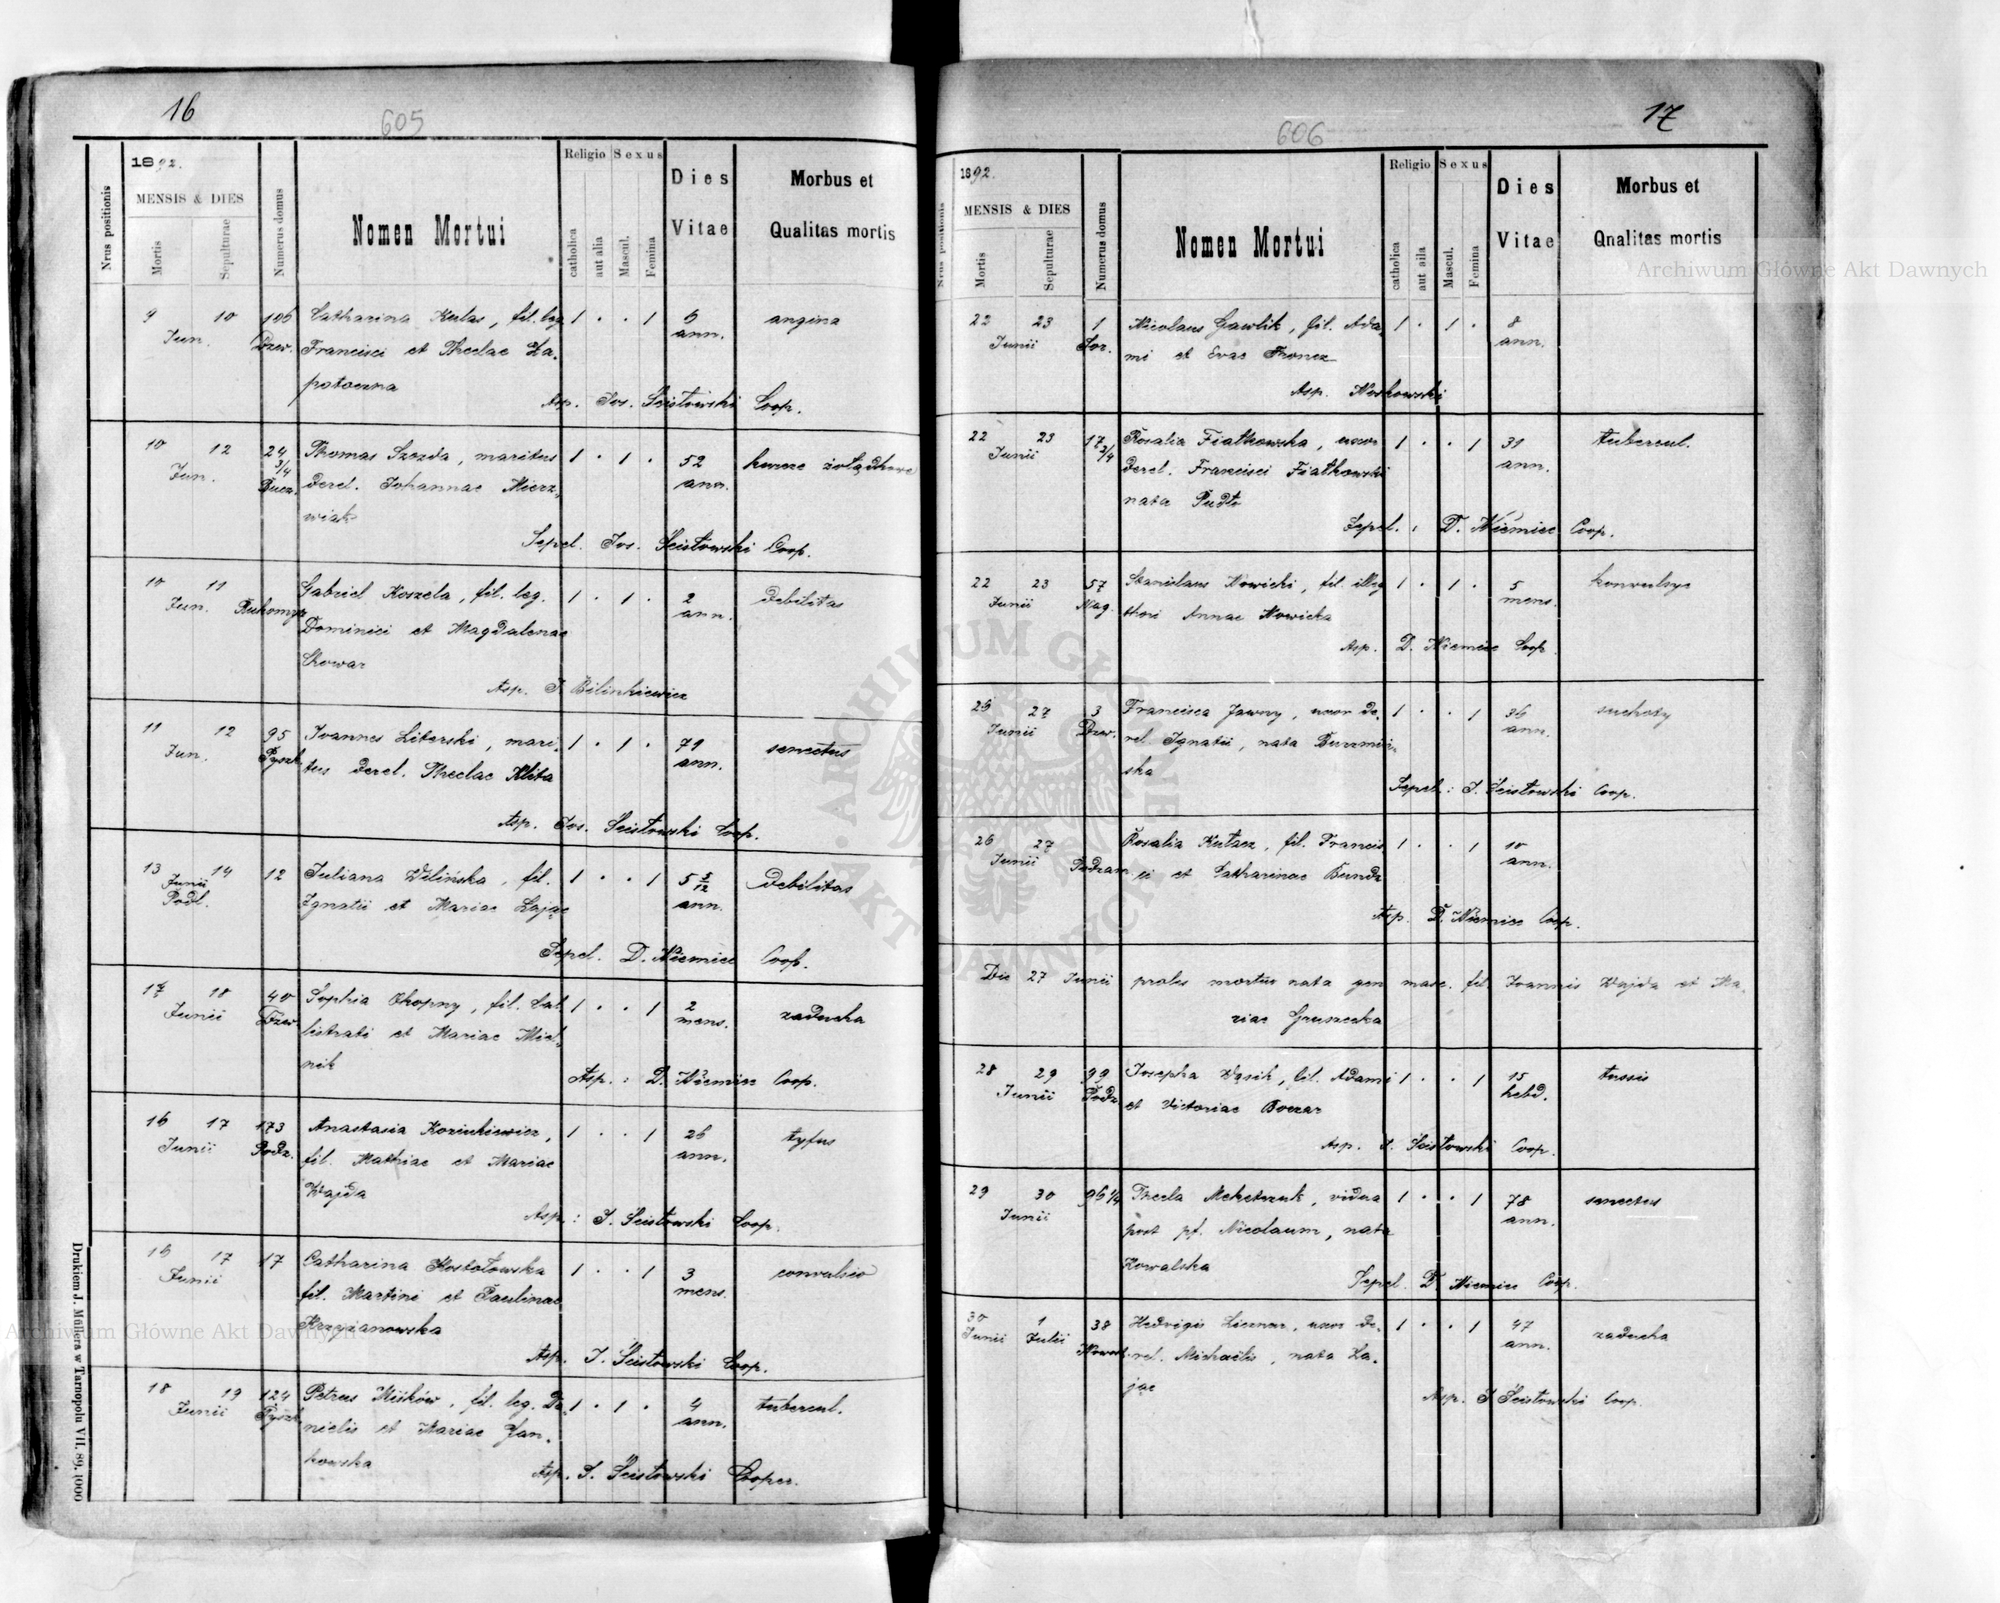 16
605
1892.
Nrus positionis
MENSIS & DIES
Mortis
Sepulturae
Numerus domus
Nomen Mortui
Religio
catholica
aut alia
Sexus
Mascul.
Femina
Dies
Vitae
Morbus et
Qualitas mortis
9 10 106 Catharina Kulas, fil. leg. 1 . . 1 6 angina
Jun. Dzw. Francisci et Theclae Za- ann.
potoczna
Asp. Jos. Scistowski Coop.
10 12 24 Thomas Szozda, maritus 1 . 1 . 52 kurcze żołądkowe
Jun. 3/4 Bucz. derel. Johannae Mierz- ann.
wiak
Sepel. Jos. Scistowski Coop.
10 11 Gabriel Koszela, fil. leg. 1 . 1 . 2 debilitas
Jun. Dominici et Magdalenae ann.
Chowar
Asp. J. Bilinkiewicz
11 12 95 Ioannes Literski, mari 1 . 1 . 79 senectus
Jun. Pyszk. tus derel. Theclae Klita ann.
Asp. Jos. Scistowski Coop.
13 14 12 Juliana Wilińska, fil. 1 . . 1 5 5/12 debilitas
Junii Podl. Ignatii et Mariae Zając ann.
Sepel. D. Niemiec Coop.
17 18 40 Sophia Okopny, fil. Cal 1 . . 1 2 zaducha
Junii Dzw. listrati et Mariae Miel- mens.
nik
Asp.: D. Niemiec Coop.
16 17 173 Anastasia Kozinkiewicz, 1 . . 1 26 tyfus
Junii Podz. fil. Mathiae et Mariae ann.
Wajda
Asp.: J. Scistowski Coop.
16 17 17 Catharina Kostołowska 1 . . 1 3 convulsio
Junii fil. Martini et Paulinae mens.
Krzyżanowska
Asp. J. Scistowski Coop.
18 19 124 Petrus Miśków, fil. leg. Da- 1 . 1 . 4 tubercul.
Junii Pyszk. nielis et Mariae Jan- ann.
kowska
Asp. J. Scistowski Cooper.
Drukiem J. Müllera w Tarnopolu VII. 89. 1000
17
606
1892.
Nrus positionis
MENSIS & DIES
Mortis
Sepulturae
Numerus domus
Nomen Mortui
Religio
catholica
aut aila
Sexus
Mascul.
Femina
Dies
Vitae
Morbus et
Qnalitas mortis
22 23 1 Nicolaus Gawlik, fil. Ada- 1 . 1 . 8
Junii Sor. mi et Evae Froncz ann.
Asp. Noskowski
22 23 17 3/4 Rosalia Fiatkowska, uxor 1 . . 1 31 tubercul.
Junii derel. Francisci Fiatkowski ann.
nata Pudło
Sepel.: D. Niemiec Coop.
22 23 57 Stanislaus Nowicki, fil. illeg 1 . 1 . 5 konvulsye
Junii Nag. thori Annae Nowicka mens.
Asp. D. Niemiec Coop
26 27 3 Francisca Jawny, uxor de- 1 . . 1 36 suchoty
Junii Dzw. rel. Ignatii, nata Burzmiń- ann.
ska
Sepel.: J. Scistowski Coop.
26 27 Rosalia Kutacz, fil. Francis 1 . . 1 10
Junii Podzam ci et Catharinae Bundz ann.
Asp. D. Niemiec Coop.
Die 27 Junii proles mortua nata gen masc. fil. Ioannis Wajda et Ma-
riae Gruszecka
28 29 99 Josepha Wąsik, fil. Adami 1 . . 1 15 tussis
Junii Podz et Victoriae Boczar hebd.
Asp. J. Scistowski Coop.
29 30 96 1/4 Thecla Meketczuk, vidua 1 . . 1 78 senectus
Junii post pf. Nicolaum, nata ann.
Kowalska
Sepel. D. Niemiec Coop.
30 1 38 Hedvigis Licznar, uxor de- 1 . . 1 47 zaducha
Junii Julii rel. Michaëlis, nata Za- ann.
jąc
Asp. J Scistowski Coop.
Archiwum Główne Akt Dawnych
Archiwum Główne Akt Dawnych
ARCHIWUM GŁÓWNE AKT DAWNYCH